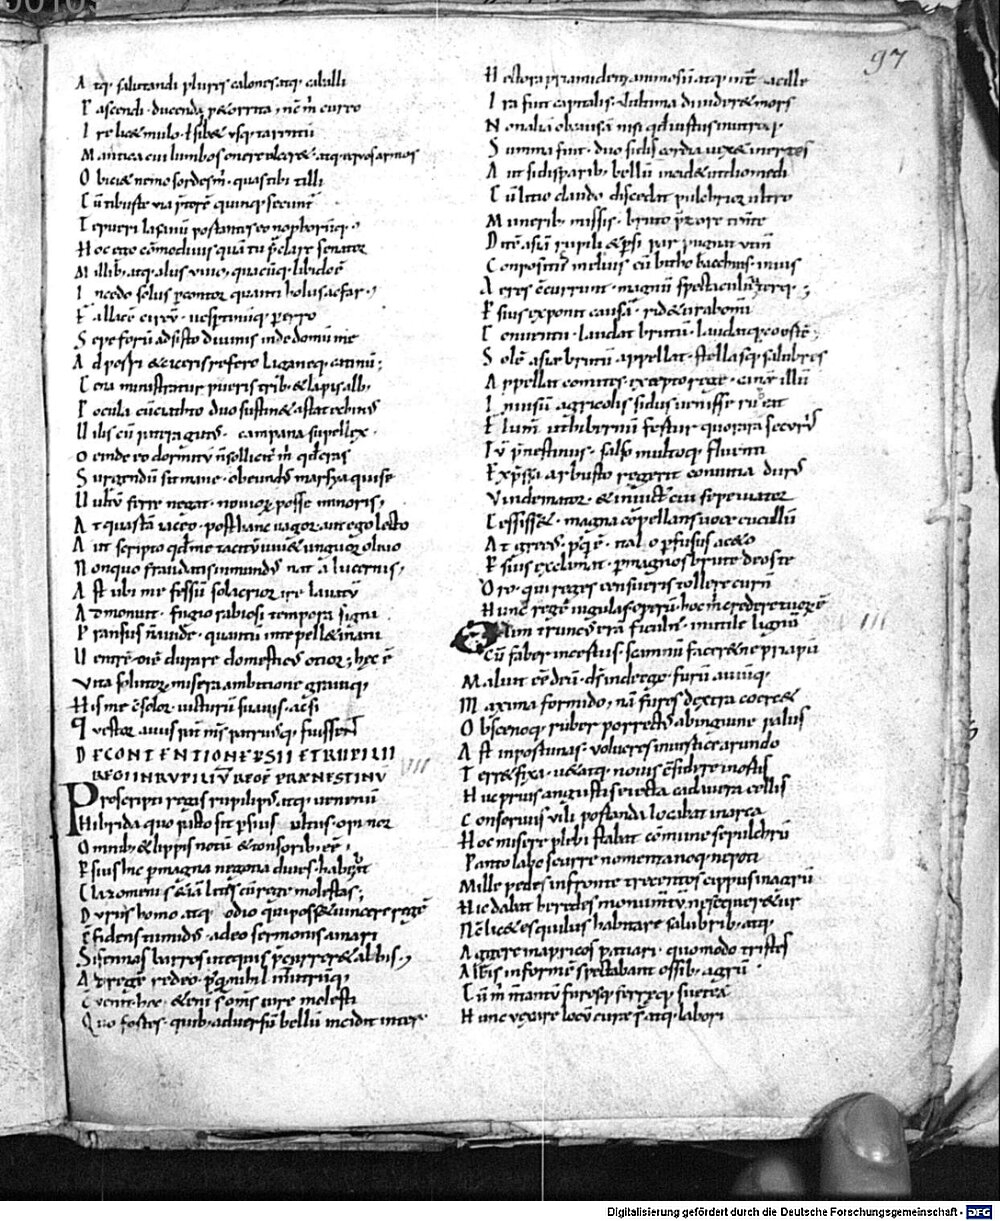 97
Atq; salutandi plures calones atq; caballi
Pascendi · ducenda petorrita, nc̄ m̄ curto
Ire licet mulo · ł si libet usq; tarentū
Mantica cui lumbos onere ulceret atq; eques armos
Obiciet nemo sordes m̄ · quas tibi tilli
Cū tiburte via p̄tore quinq; secunt̄
Te pueri lasanū portantes oenophorūq;
Hoc ego cōmodius quā tu p̄clare senator
Millib; atq; aliis vivo, quacūq; libido ē
Incedo solus p̄contor quanti holus ac far;
Fallacē circū · uespertinūq; p̄erro
Sepe forū adsisto diuinis inde domū me
Ad porri & ciceris refero laganiq; catinū;
Cena ministratur pueris trib; & lapis alb;
Pocula cū ciatho duo sustinet astat echinus
Uilis cū patera gutus · campana supellex ·
Deinde eo dormitū ñ sollicitus m̄ qđ cras
Surgendū sit mane · obeundus marsya qui se
Uultū ferre negat · nouiorū posse minoris;
At quartā iaceo · post hanc uagor · aut ego lecto
Aut scripto qđ me tacitū iuuet unguor oliuo
Non quo fraudatis inmundus natta lucernis;
Ast ubi me fessū sol acrior ire lauatū
Admonuit · fugio rabiosi tempora signi
Pransus ñ auide · quantū interpellet inani
Uentre diē durare domesticus otior; hęc ē
Vita solutorū misera ambitione grauiq;
His me c̄solor uicturū suauius · ac si
Questor auus pat̄ m̄s patruusq; fuissent
DE CONTENTIONE PSII ET RUPILII
REGI IN RUPILIŪ REGĒ PRAENESTINU VII
Proscripti regis rupili pus atq; uenenū
Hibrida quo pacto sit p̄sius ultus · opinor
Omnib; & lippis notū & tonsorib; ēē;
Psius hic p̄magna negotia diues habebat
Clazomenis & iā lites cū rege molestas;
Durus homo atq; odio qui posset uincere regē
C̄fidens tumidus · adeo sermonis amari
Sisennas barros ut equis p̄curreret albis;
Ad regē redeo · p̄q̄ nihil int̄ utrūq;
C̄uenit · hoc etenī s̄ om̄s iure molesti
Quo fortes · quib; aduersū bellū incidit inter
Hectora priamiden animosū atq; int̄ acille
Ira fuit capitalis · ut ultima diuideret mors
Non aliā ob causā nisi qđ uirtus in utroq;
Summa fuit · duo si discordia uexet inertes
Aut si disparib; bellū incidat ut diomedi
Cū licio glauco discedat pulchrior ultro
Munerib; missis · bruto p̄tore tenēte
Ditē asiā rupili & p̄si par pugnat · utin̄
Conpositus melius cū bitho bacchius · in ius
Acres c̄currunt · magnū spectaculū uterq;
Psius exponit causā · ridet ab om̄i
Conuentu · laudat brutū · laudatq; cohortē;
Solē asiae brutū appellat · stellasq; salubres
Appellat comites · excepto rege · canē illū
Inuisū agricolis sidus uenisse ruebat
Flum̄ ut hibernū fertur quo rara securis
Tū p̄nestinus · salso multoq; fluenti
Exp̄ssa arbusto regerit conuitia durus
Vindemiator · & inuictus cui sepe uiator
Cessisset · magna cōpellans uoce cucullū
At grecus · pq̄ ē · italo p̄fusus aceto
Psius exclamat · p̄ magnos brute deos te
Oro · qui reges consueris tollere cur ñ
Hunc regē iugulas operū hoc m̄ crede tuorū ē
Olim truncus erā ficulnus · inutile lignū VIII
Cū faber incertus · scamnū faceretne priapū
Maluit ēē deū · ds̄ inde ego · furū auiūq;
Maxima formido, nā fures dextra coercet
Obscenoq; ruber porrectus ab ingune palus
Ast inportunas · uolucres in uertice arundo
Terret fixa · uetatq; nouis c̄sidere in ortis
Huc prius angustis eiecta cadauera cellis
Conseruus uili portanda locabat in arca
Hoc misere plebi stabat cōmune sepulchrū
Pantolabo scurre nomentanoq; nepoti
Mille pedes in fronte trecentos cippus in agrū
Hic dabat heredes monumtū ne sequeretur
Nc̄ licet esquiliis habitare salubrib; atq;
Aggere in aprico spatiari · quo modo tristes
Albis informē spectabant ossib; agrū ·
Cū m̄ ñ tantū furesq; ferręq; suetae
Hunc uexare locū curae s̄ atq; labori
Digitalisierung gefördert durch die Deutsche Forschungsgemeinschaft - DFG